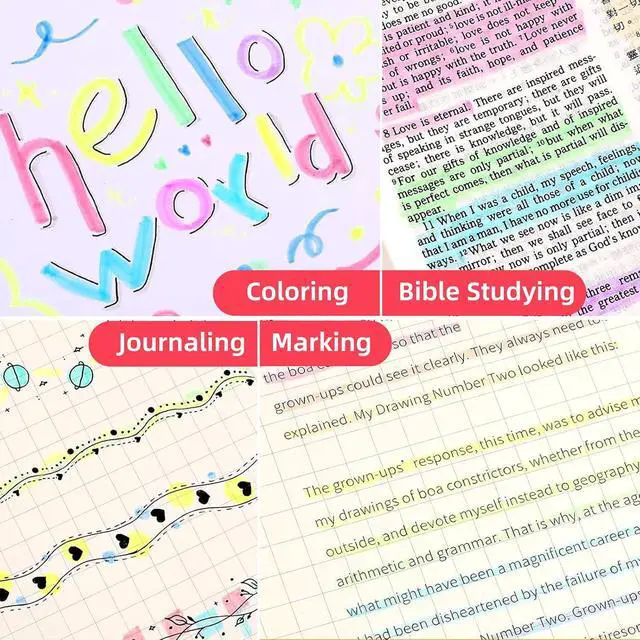 hello
world
me no good.
patient and kind; it
or proud; ⁵love is not
or irritable; love does not keep
of wrongs; ⁶love is not happy with
is happy with the truth. ⁷Love never
up; and its faith, hope, and patience
fail.
8 Love is eternal. There are inspired mess-
ages, but they are temporary; there are gifts
of speaking in strange tongues, but they will
cease; there is knowledge, but it will pass.
⁹For our gifts of knowledge and of inspired
messages are only partial; ¹⁰but when what
is perfect comes, then what is partial will dis-
appear.
11 When I was a child, my speech, feelings,
and thinking were all those of a child;
that I am a man, I have no more use for
ways. ¹²What we see now is like a dim
mirror; then we shall see face to
now is only partial; then
complete as God's
three
the greatest
Coloring
Bible Studying
Journaling
Marking
so that the
the boa
grown-ups could see it clearly. They always need to
explained. My Drawing Number Two looked like this:
The grown-ups' response, this time, was to advise
my drawings of boa constrictors, whether from the
outside, and devote myself instead to geography
arithmetic and grammar. That is why, at the
what might have been a magnificent career
had been disheartened by the failure of
Number Two. Grown-ups